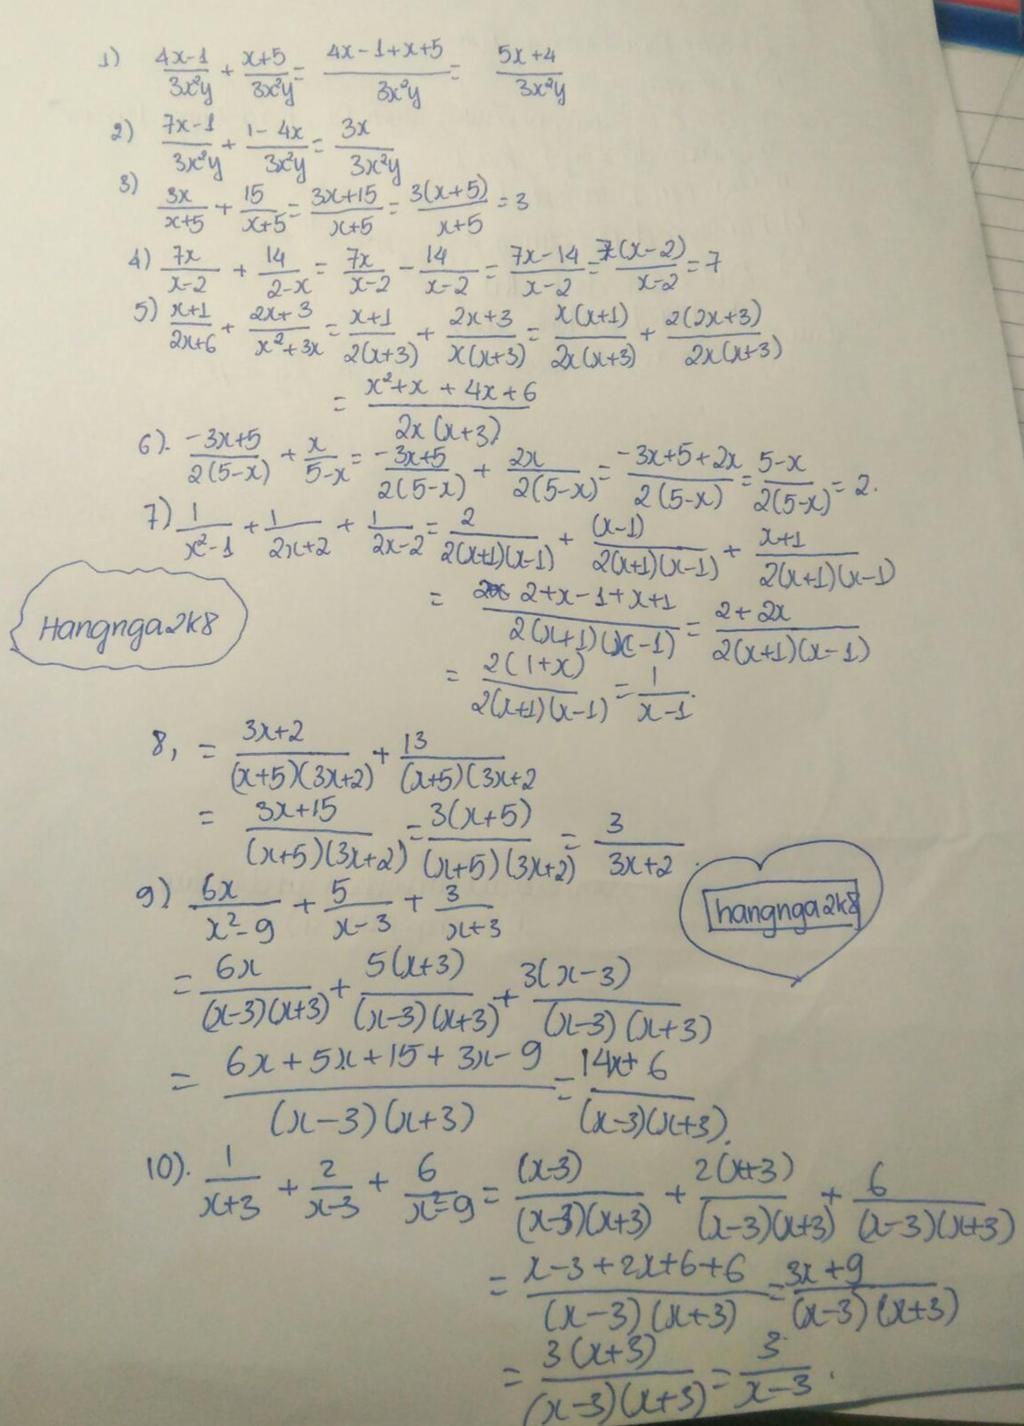 1) (4x-1)/(3x²y) + (x+5)/(3x²y) = (4x-1+x+5)/(3x²y) = (5x+4)/(3x²y)
2) (7x-1)/(3x²y) + (1-4x)/(3x²y) = 3x/(3x²y)
3) 3x/(x+5) + 15/(x+5) = (3x+15)/(x+5) = 3(x+5)/(x+5) = 3
4) 7x/(x-2) + 14/(2-x) = 7x/(x-2) - 14/(x-2) = (7x-14)/(x-2) = 7(x-2)/(x-2) = 7
5) (x+1)/(2x+6) + (2x+3)/(x²+3x) = (x+1)/(2(x+3)) + (2x+3)/(x(x+3)) = x(x+1)/(2x(x+3)) + 2(2x+3)/(2x(x+3))
= (x²+x+4x+6)/(2x(x+3))
6). (-3x+5)/(2(5-x)) + x/(5-x) = (-3x+5)/(2(5-x)) + 2x/(2(5-x)) = (-3x+5+2x)/(2(5-x)) = (5-x)/(2(5-x)) = 2.
7) 1/(x²-1) + 1/(2x+2) + 1/(2x-2) = 2/(2(x+1)(x-1)) + (x-1)/(2(x+1)(x-1)) + (x+1)/(2(x+1)(x-1))
= (2+x-1+x+1)/(2(x+1)(x-1)) = (2+2x)/(2(x+1)(x-1))
Hangnga2k8
= 2(1+x)/(2(x+1)(x-1)) = 1/(x-1).
8, = (3x+2)/((x+5)(3x+2)) + 13/((x+5)(3x+2
= (3x+15)/((x+5)(3x+2)) = 3(x+5)/((x+5)(3x+2)) = 3/(3x+2).
9) 6x/(x²-9) + 5/(x-3) + 3/(x+3)
hangnga2k8
= 6x/((x-3)(x+3)) + 5(x+3)/((x-3)(x+3)) + 3(x-3)/((x-3)(x+3))
= (6x+5x+15+3x-9)/((x-3)(x+3)) = (14x+6)/((x-3)(x+3)).
10). 1/(x+3) + 2/(x-3) + 6/(x²-9) = (x-3)/((x-3)(x+3)) + 2(x+3)/((x-3)(x+3)) + 6/((x-3)(x+3))
= (x-3+2x+6+6)/((x-3)(x+3)) = (3x+9)/((x-3)(x+3))
= 3(x+3)/((x-3)(x+3)) = 3/(x-3).